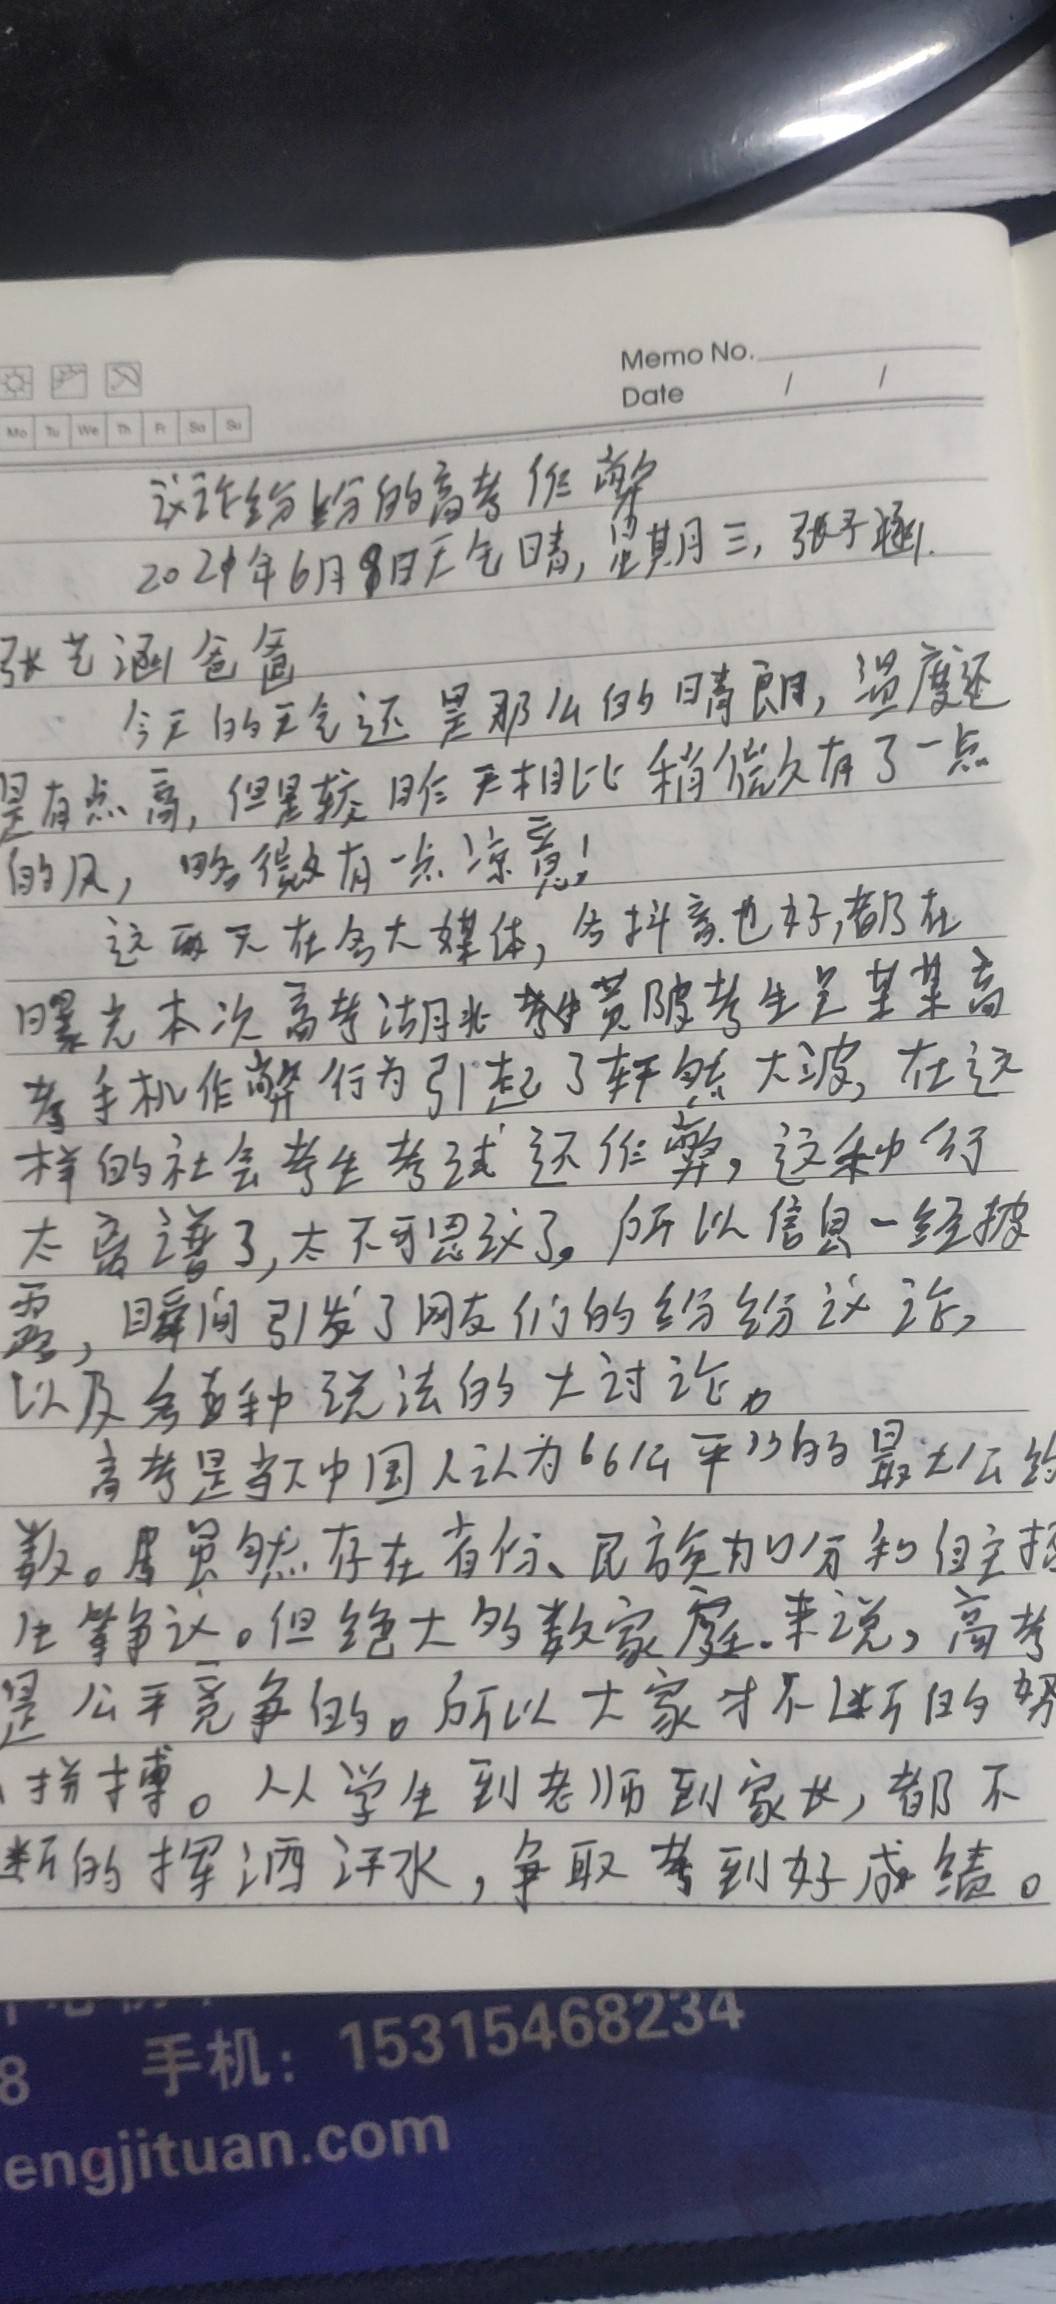 Memo No.
Date / /
Mo Tu We Th Fr Sa Su
议论纷纷的高考作弊
2021年6月8日天气晴,星期三,张予涵.
张艺涵爸爸
今天的天气还是那么的晴朗,温度还
是有点高,但是较昨天相比稍微久有了一点
的风,略微有一点凉意!
这两天在各大媒体,各抖音也好,都在
曝光本次高考湖北考生黄陂考生吴某某高
考手机作弊行为引起了轩然大波,在这
样的社会考生考试还作弊,这种行
太离谱了,太不可思议了。所以信息一经披
露,瞬间引发了网友们的纷纷议论,
以及各种说法的大讨论。
高考是被中国人认为“公平”的最大公约
数。虽然存在省份、民族加分和自主招
生等争议。但绝大多数家庭来说,高考
是公平竞争的。所以大家才不断的努
拼搏。从学生到老师到家长,都不
断的挥洒汗水,争取考到好成绩。
8 手机:15315468234
engjituan.com